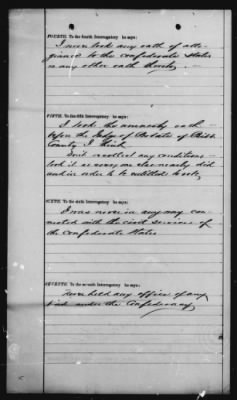 FOURTH. To the fourth Interrogatory he says:
I never took any oath of alle-
giance to the Confederate States
or any other oath thereby. —
FIFTH. To the fifth Interrogatory he says:
I took the amnesty oath —
before the Judge of Probate of
County I think —
Don't recollect any conditions —
took it as every one else nearly did
and in order to be entitled to
SIXTH. To the sixth Interrogatory he says:
I was never in any way con-
nected with the civil service of
the Confederate States
SEVENTH. To the seventh Interrogatory he says:
Never held any office of any
kind under the Confederacy